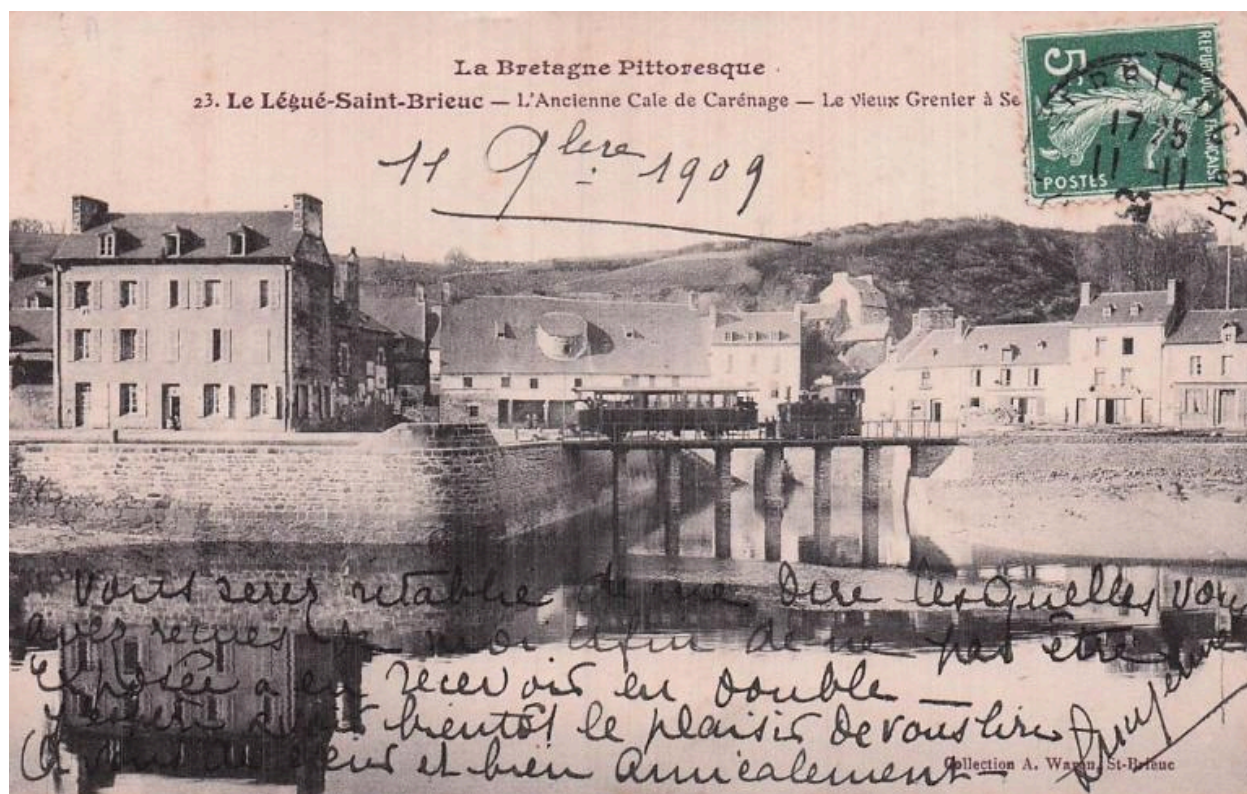 La Bretagne Pittoresque
23. Le Légué-Saint-Brieuc — L'Ancienne Cale de Carénage — Le vieux Grenier à Se
5c
REPUBLIQUE FRANÇAISE
POSTES
ST BRIEUC
17 15
11 - 11
11 9bre 1909
Vous serez rétablie de me dire lesquelles vous
avez reçues de moi afin de ne pas être
Exposée a en recevoir en double —
bientôt le plaisir de vous lire
et bien Amicalement —
Collection A. Waron, St-Brieuc